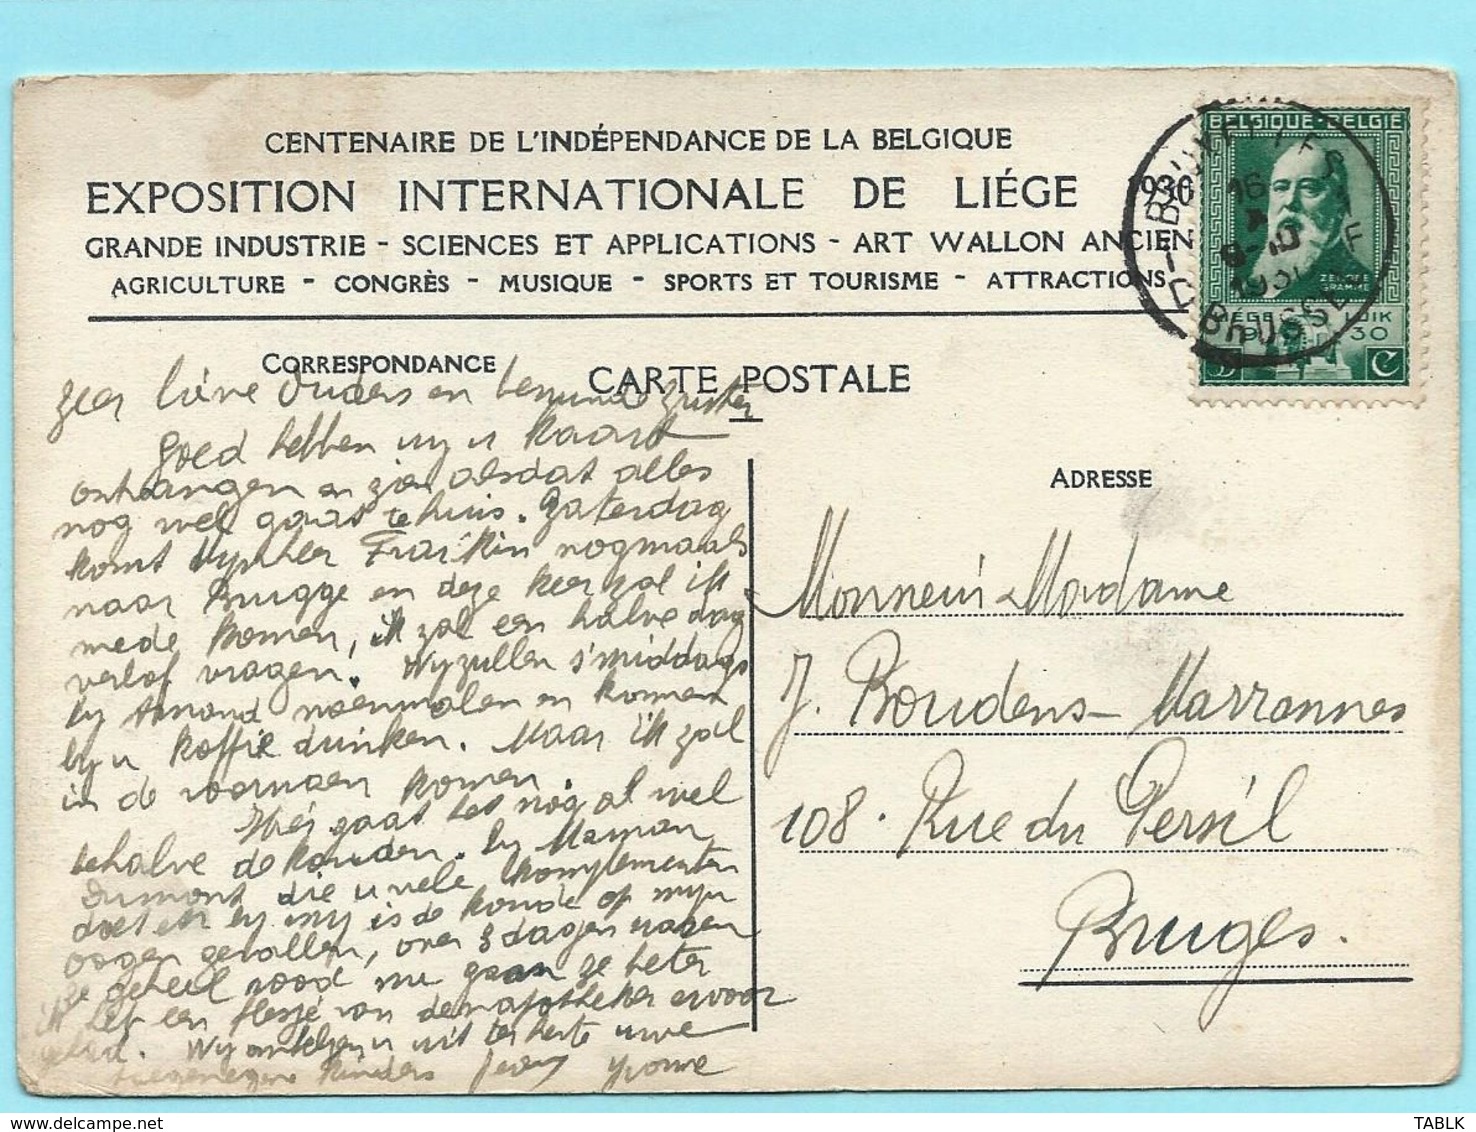 CENTENAIRE DE L'INDÉPENDANCE DE LA BELGIQUE
EXPOSITION INTERNATIONALE DE LIÉGE 1930
GRANDE INDUSTRIE - SCIENCES ET APPLICATIONS - ART WALLON ANCIEN
AGRICULTURE - CONGRÈS - MUSIQUE - SPORTS ET TOURISME - ATTRACTIONS
BELGIQUE-BELGIE
ZENOBE
GRAMME
LIÉGE LUIK
19 30
5 C
BRUXELLES
16
9-10
1930
BRUSSEL
CORRESPONDANCE
CARTE POSTALE
Zeer lieve Ouders en beminde Zuster
Goed hebben wy u kaart
ontvangen en zien alsdat alles
nog wel gaat te huis. Zaterdag
komt Mynheer Frankin nogmaals
naar Brugge en deze keer zal ik
mede komen, ik zal een halve dag
verlof vragen. Wy zullen s'middags
by Armand noenmalen en komen
by u koffie drinken. Maar ik zal
in de voornoen komen.
Hier gaat het nog al wel
behalve de kouden. by Maman
Dumont die u vele komplementen
doet en by my is de koude op myn
oogen gevallen, over 3 dagen waren
ze geheel rood nu gaan ze beter
ik heb een flesje van den apotheker ervoor
gehad. Wy omhelzen u uit ter herte uwe
toegenegen kinders Yvonne
ADRESSE
Monsieur & Madame
J. Boudens-Marrannes
108. Rue du Persil
Bruges.
TABLK